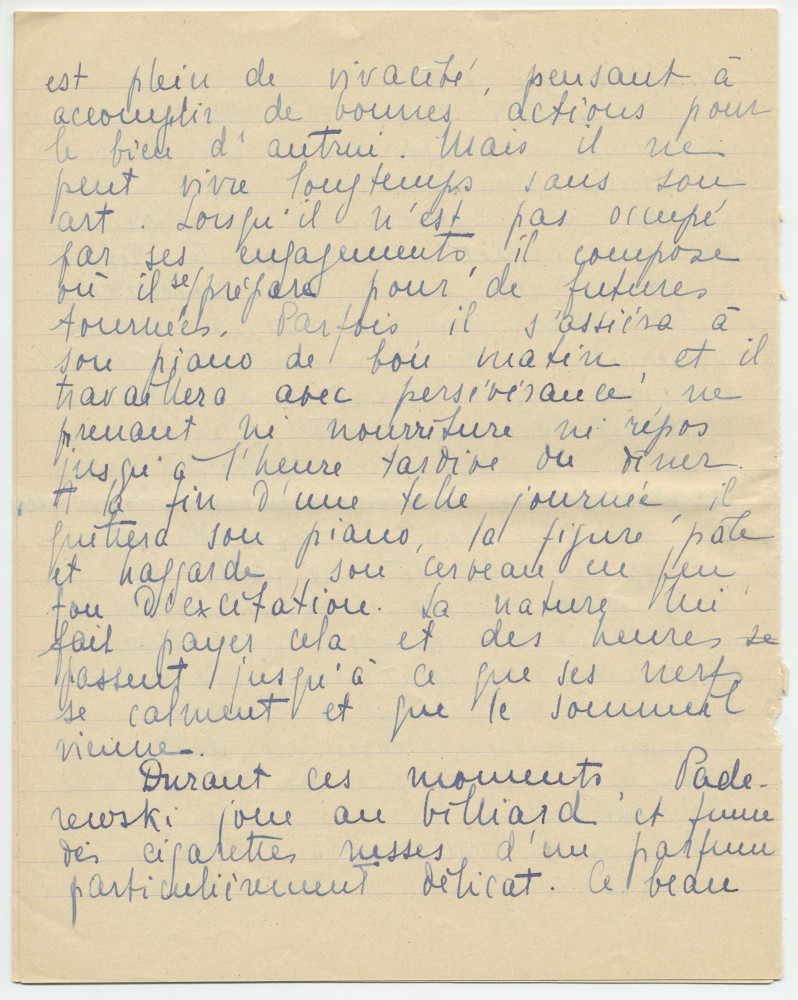 est plein de vivacité, pensant à
accomplir de bonnes actions pour
le bien d'autrui. Mais il ne
peut vivre longtemps sans son
art. Lorsqu'il n'est pas occupé
par ses engagements, il compose
où il se prépare pour de futures
tournées. Parfois il s'assiéra à
son piano de bon matin et il
travaillera avec persévérance, ne
prenant ni nourriture ni répos
jusqu'à l'heure tardive du dîner.
A la fin d'une telle journée, il
quittera son piano, la figure pâle
et haggarde, son cerveau en feu,
fou d'excitation. La nature lui
fait payer cela et des heures se
passent jusqu'à ce que ses nerfs
se calment et que le sommeil
vienne.
Durant ces moments, Pade-
rewski joue au billiard et fume
des cigarettes russes d'un parfum
particulièrement délicat. Ce beau